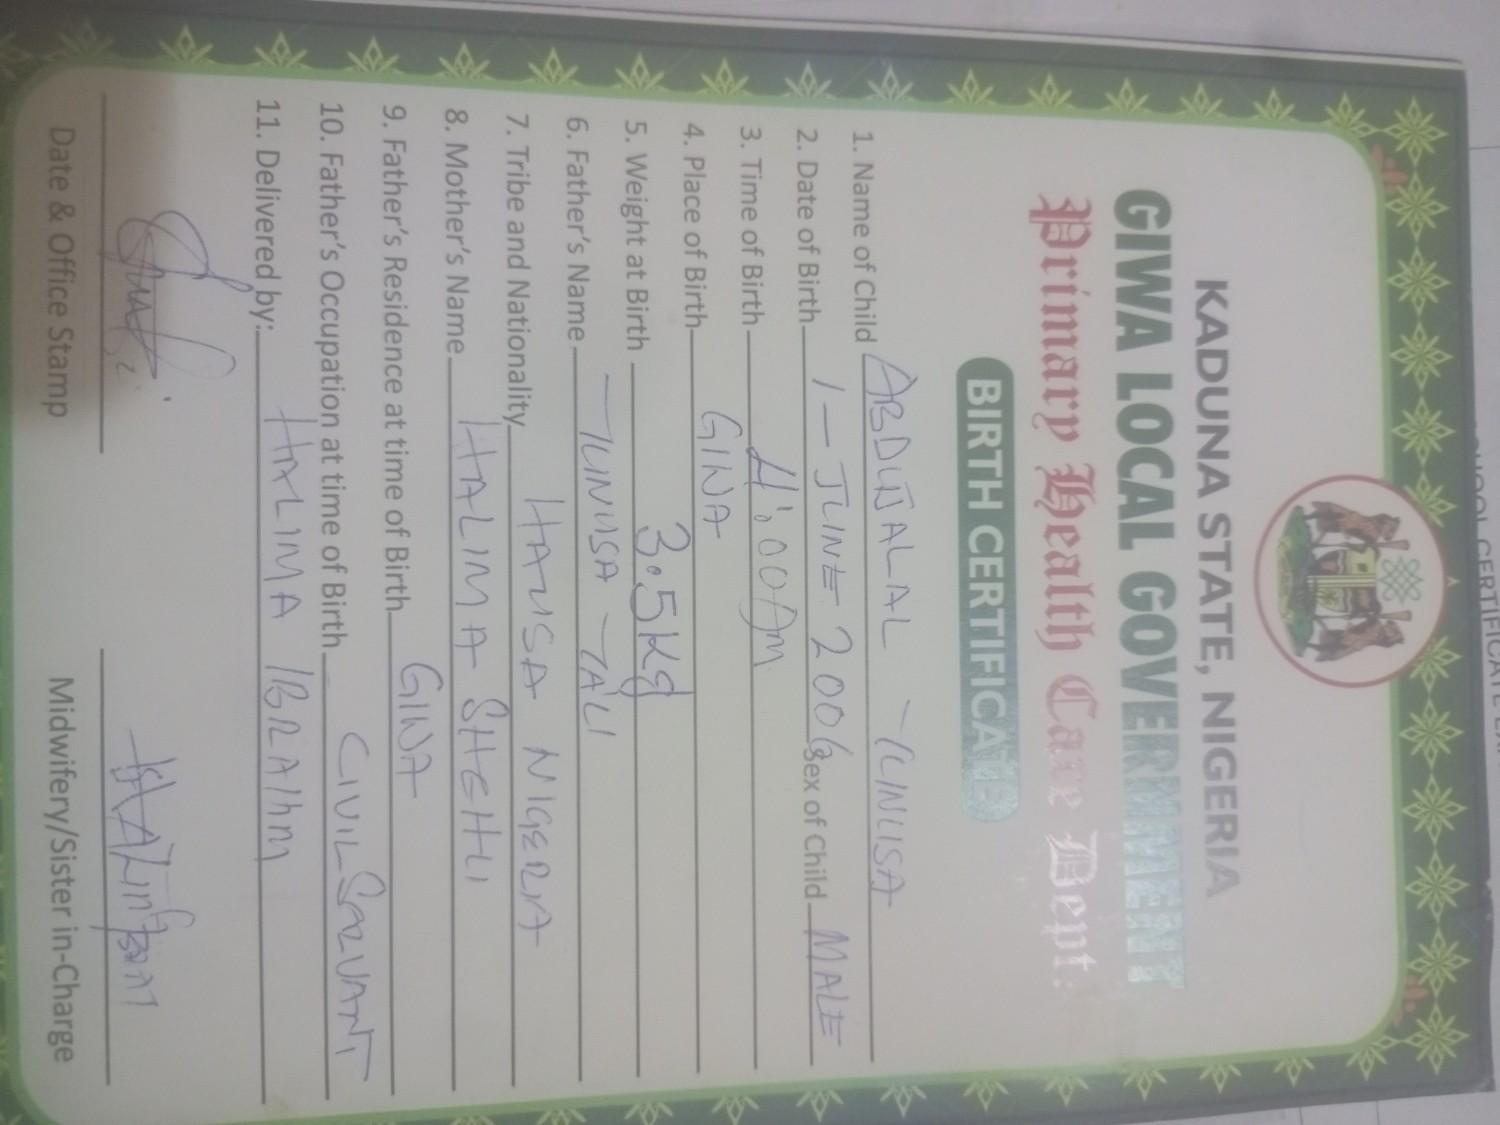 KADUNA STATE, NIGERIA
GIWA LOCAL GOVERNMENT
Primary Health Care Dept.
BIRTH CERTIFICATE
1. Name of Child ABDUJALAL YUNUSA
2. Date of Birth 1-JUNE 2006 Sex of Child MALE
3. Time of Birth 4:00Am
4. Place of Birth GIWA
5. Weight at Birth 3.5kg
6. Father's Name YUNUSA
7. Tribe and Nationality HAUSA NIGERIA
8. Mother's Name HALIMA SHEHU
9. Father's Residence at time of Birth GIWA
10. Father's Occupation at time of Birth CIVIL SERVANT
11. Delivered by: HALIMA IBRAHIM
Date & Office Stamp
Midwifery/Sister in-Charge